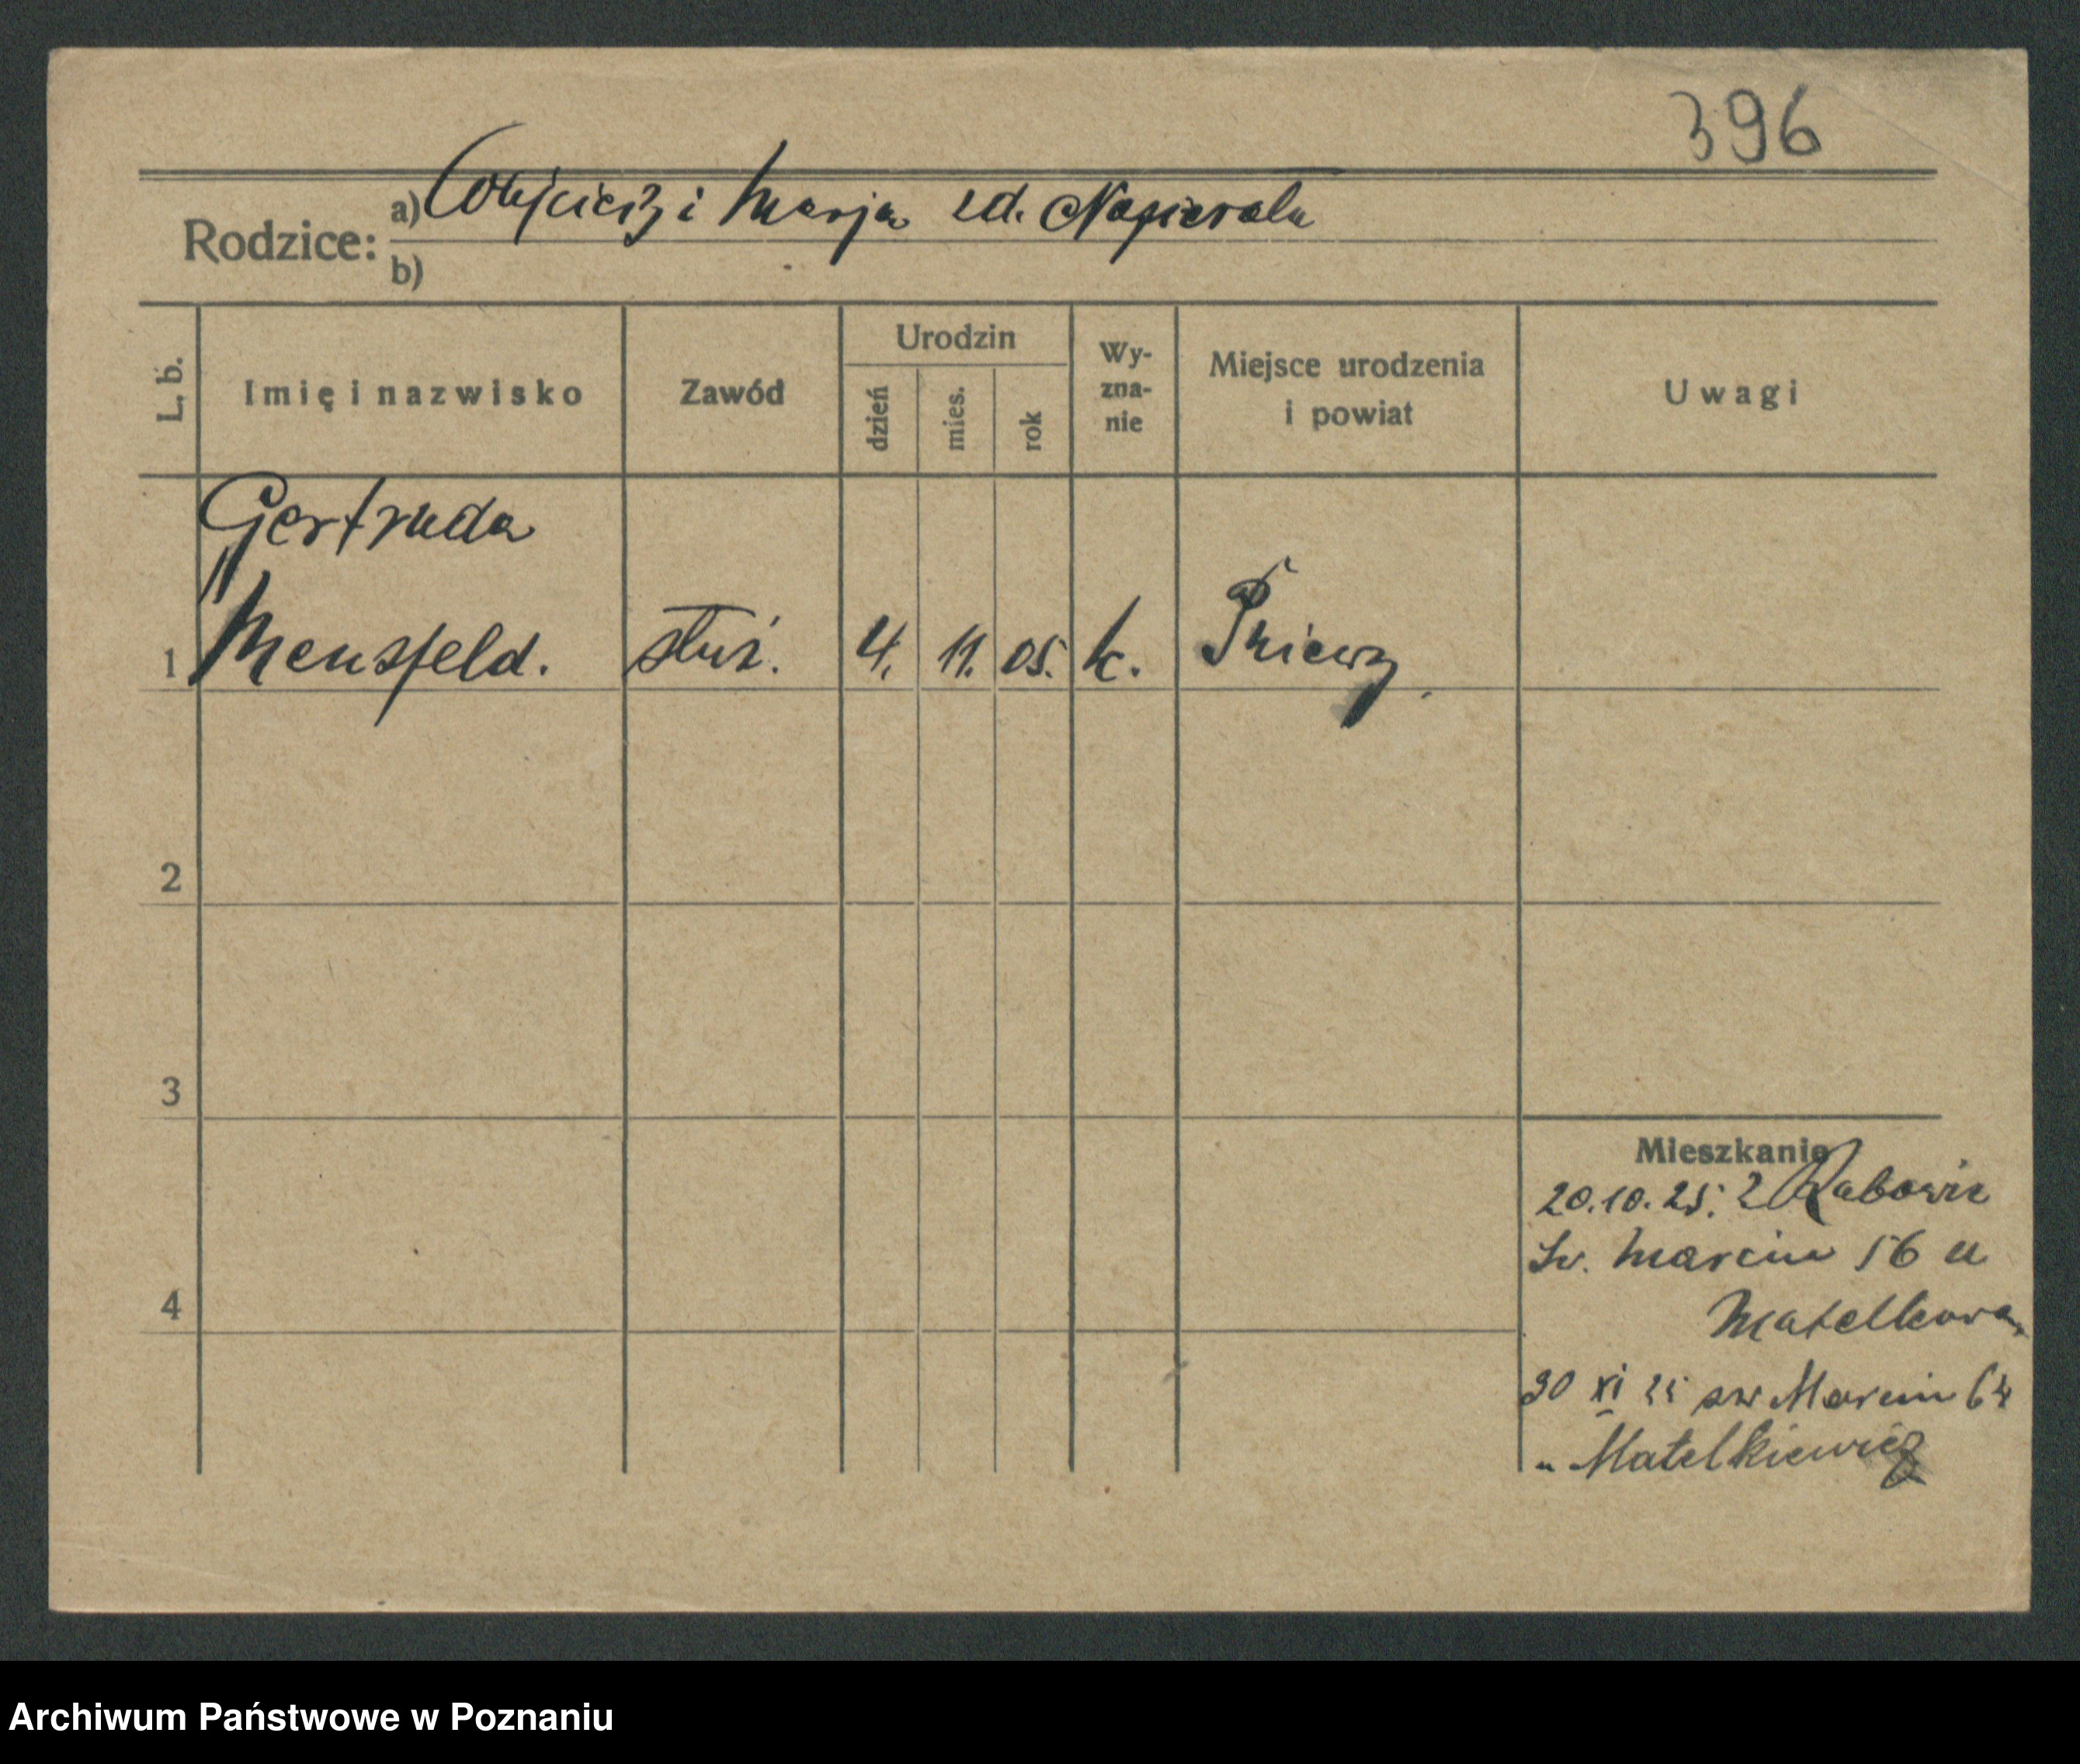 396
Rodzice: a) Wojciech i Marja zd. Napierała
b)
L. b. Imię i nazwisko Zawód Urodzin dzień mies. rok Wy-zna-nie Miejsce urodzenia i powiat Uwagi
Gertruda
1 Mensfeld. służ. 4. 11. 05. k. Pniewy
2
3
Mieszkanie
20.10.25. z Rabowic
Św. Marcin 56 u
4
30 XI 25 św Marcin 64
u Matelkiewicz
Archiwum Państwowe w Poznaniu